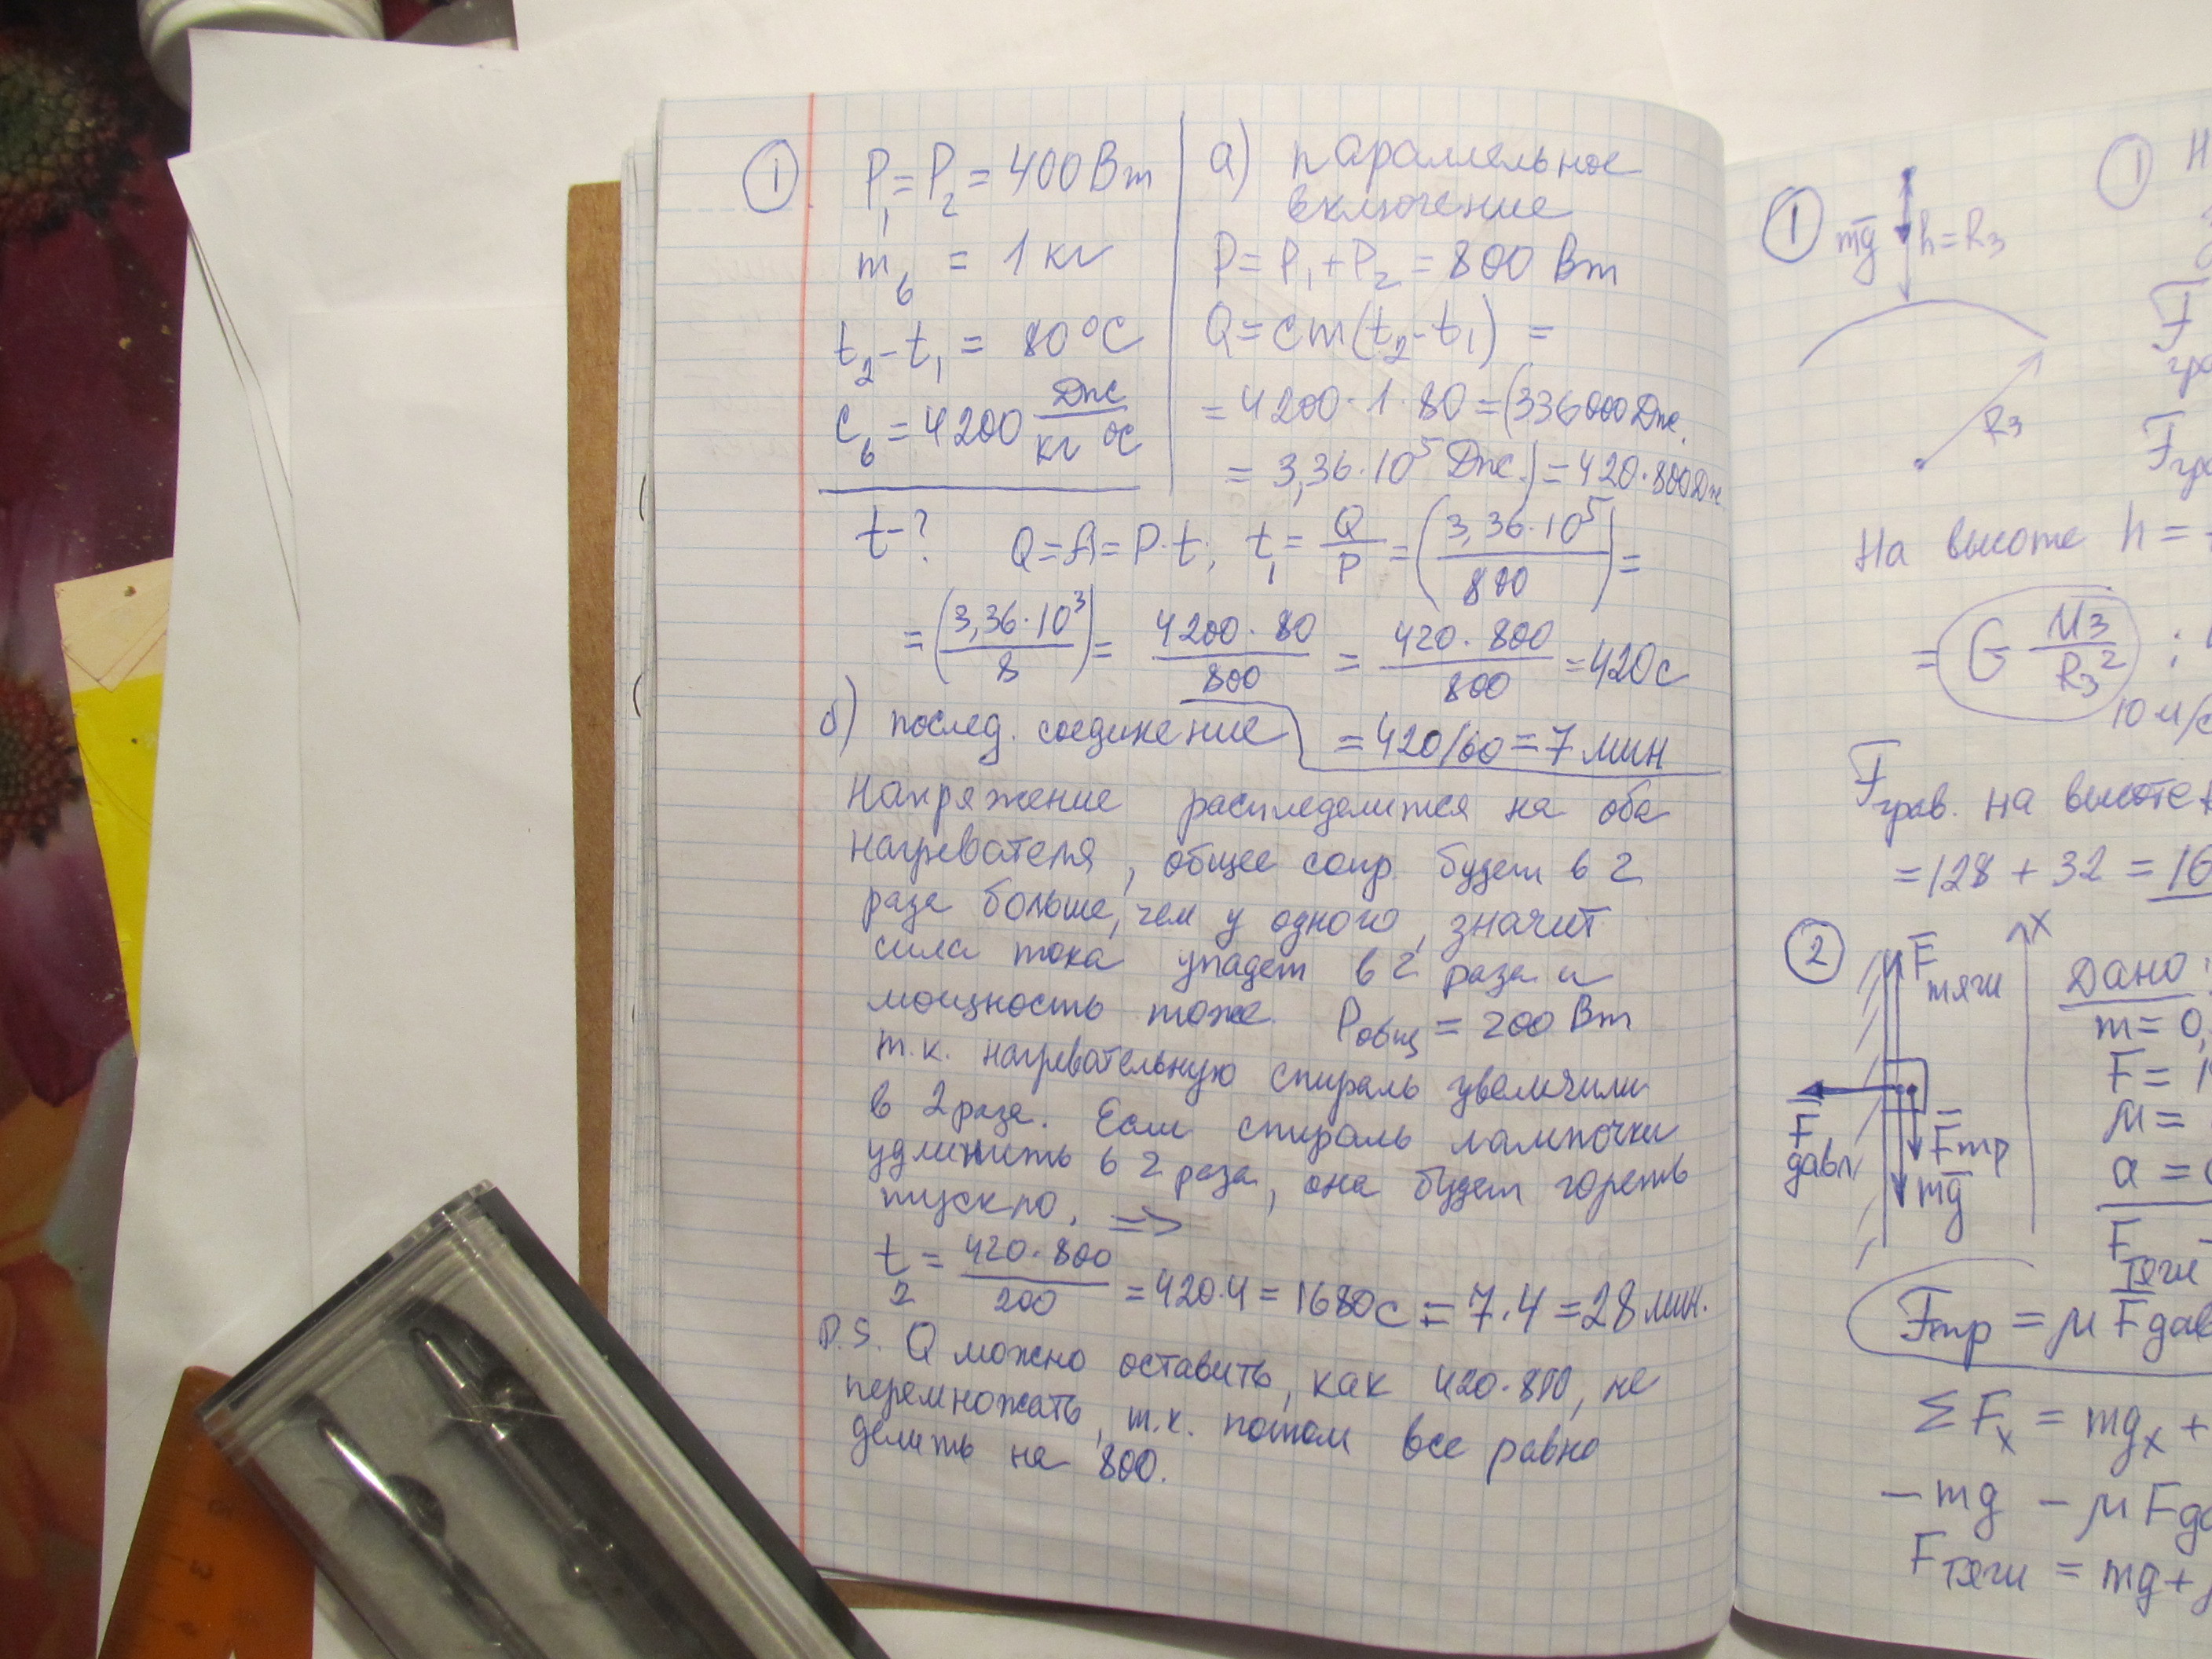 1
P₁ = P₂ = 400 Вт
m в = 1 кг
t₂ - t₁ = 80°С
c в = 4200 Дж / кг °С
t - ?
а) параллельное
включение
P = P₁ + P₂ = 800 Вт
Q = cm(t₂ - t₁) =
= 4200 · 1 · 80 = (336000 Дж.
= 3,36 · 10⁵ Дж.) = 420 · 800 Дж
Q = A = P · t; t₁ = Q / P = (3,36 · 10⁵ / 800) =
= (3,36 · 10³ / 8) = 4200 · 80 / 800 = 420 · 800 / 800 = 420 с
б) послед. соединение = 420/60 = 7 мин
Напряжение распределится на оба
нагревателя, общее сопр. будет в 2
раза больше, чем у одного, значит
сила тока упадет в 2 раза и
мощность тоже. Pобщ = 200 Вт
т.к. нагревательную спираль увеличили
в 2 раза. Если спираль лампочки
удлинить в 2 раза, она будет гореть
тускло. =>
t₂ = 420 · 800 / 200 = 420 · 4 = 1680 с = 7 · 4 = 28 мин.
P.S. Q можно оставить, как 420 · 800, не
перемножать, т.к. потом все равно
делить на 800.
1
mg h = Rз
Rз
1
Н
F
гра
Fгра
На высоте h =
= G Mз / Rз² ;
10 м/с
Fграв. на высоте
= 128 + 32 = 16
2
Fтяги
x
Fдавл
Fтр
mg
Дано:
m = 0,
F = 1
μ =
a =
Fтяги -
Fтр = μ Fдав
Σ Fx = mgx +
- mg - μ Fда
Fтяги = mg +